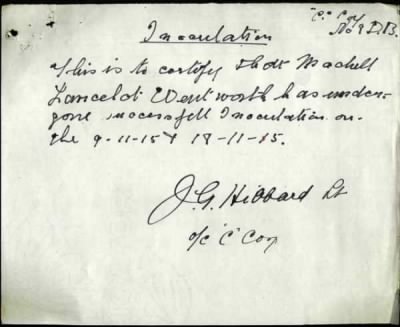 "C" Coy
No 9 D.B.
Inoculation
This is to certify that Machell
Lancelot Wentworth has under-
gone successfull Inoculation on
the 9-11-15 & 18-11-15.
J.G. Hibbard Lt
o/c "C" Coy